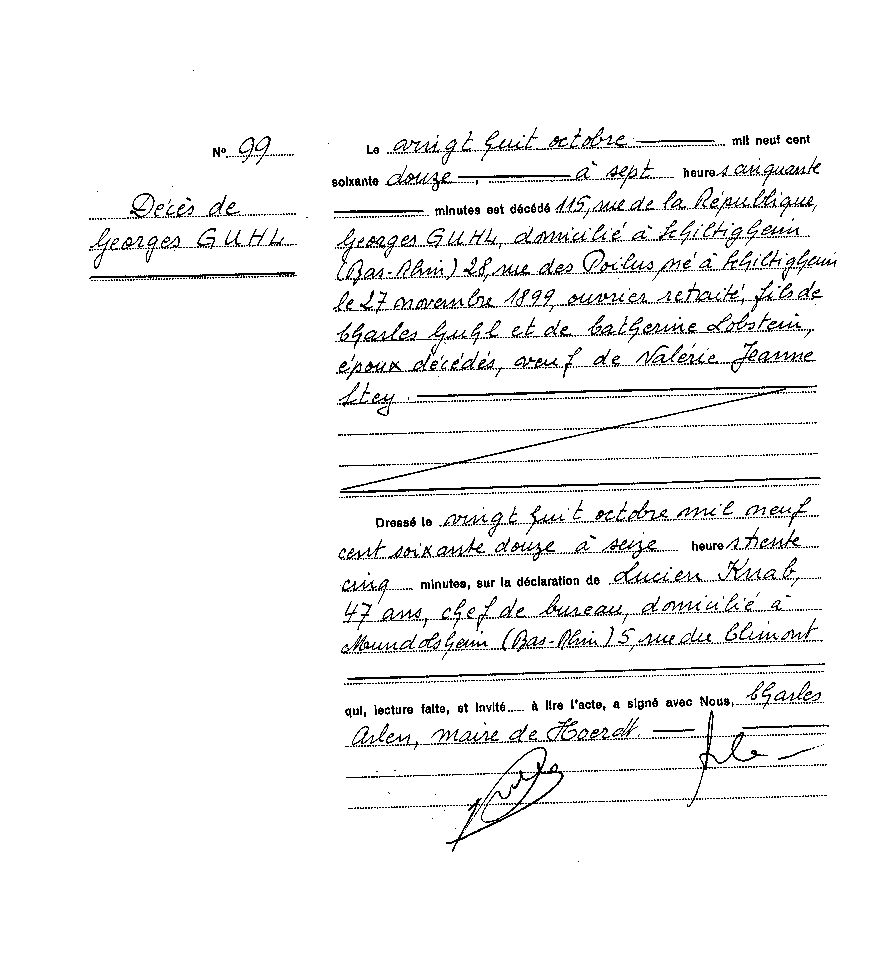 N° 99
Décès de
Georges GUHL
Le vingt huit octobre mil neuf cent
soixante douze, à sept heures cinquante
minutes est décédé 115, rue de la République,
Georges GUHL, domicilié à Schiltigheim
(Bas-Rhin) 28, rue des Poilus, né à Schiltigheim
le 27 novembre 1899, ouvrier retraité, fils de
Charles Guhl et de Catherine Lobstein,
époux décédés, veuf de Valérie Jeanne
Stey.
Dressé le vingt huit octobre mil neuf
cent soixante douze à seize heures trente
cinq minutes, sur la déclaration de Lucien Knab,
47 ans, chef de bureau, domicilié à
Mundolsheim (Bas-Rhin) 5, rue du Climont
qui, lecture faite, et invité à lire l'acte, a signé avec Nous, Charles
Arlen, maire de Hoerdt